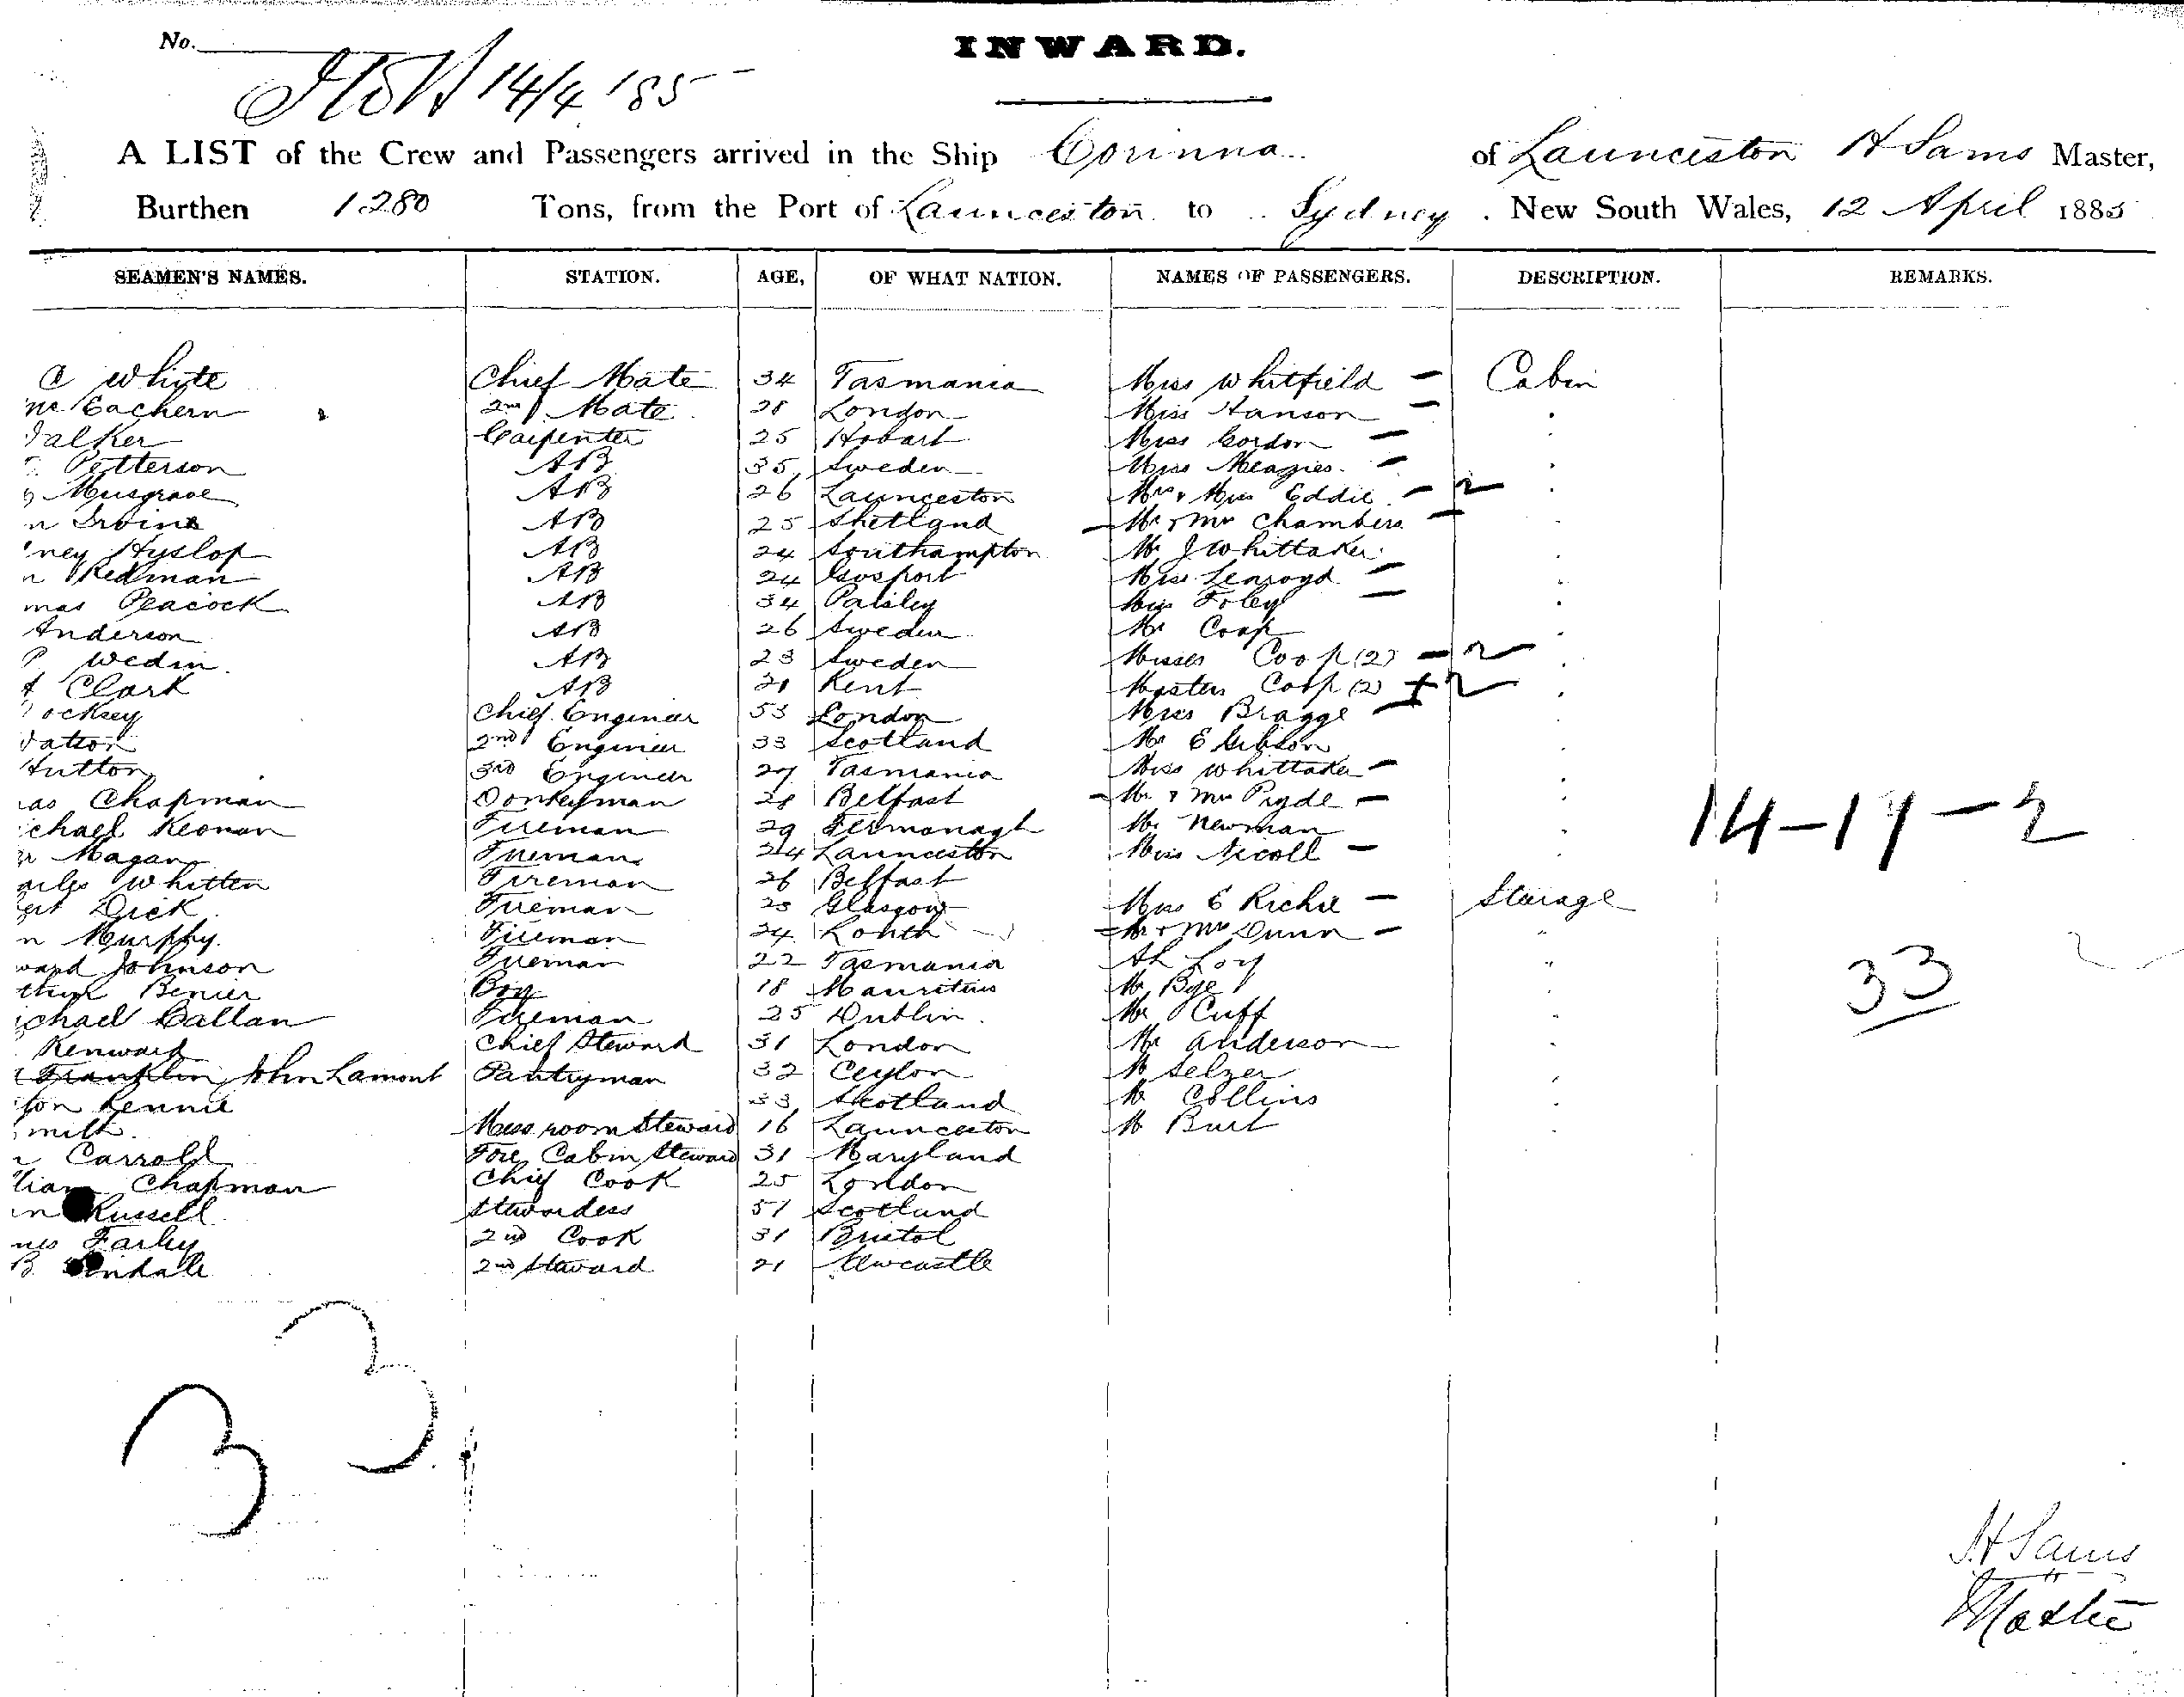 No.
INWARD.
14/4/85
A LIST of the Crew and Passengers arrived in the Ship Corinna of Launceston H Sams Master,
Burthen 1280 Tons, from the Port of Launceston to Sydney. New South Wales, 12 April 1885
SEAMEN'S NAMES. STATION. AGE, OF WHAT NATION. NAMES OF PASSENGERS. DESCRIPTION. REMARKS.
C Whyte Chief Mate 34 Tasmania Miss Whitfield — Cabin
Mc Eachern 2nd Mate 28 London Miss Hanson —
alker Carpenter 25 Hobart Miss Gordon —
Petterson AB 35 Sweden Miss Menzies —
Musgrave AB 26 Launceston Mrs & Miss Eddie — 2
n Irvine AB 25 Shetland — Mr & Mrs Chambers —
ney Hyslop AB 24 Southampton Mr J Whittaker
n Redman AB 24 Gosport Miss —
mas Peacock AB 34 Paisley Miss Foley —
Anderson AB 26 Sweden Mr Coop
P Wedin AB 23 Sweden Misses Coop (2) — 2
t Clark AB 21 Kent Masters Coop (2) + 2
ocksey Chief Engineer 53 London Miss Bragge —
atton 2nd Engineer 33 Scotland Mr E Gibson
Hutton 3rd Engineer 27 Tasmania Miss Whittaker —
as Chapman Donkeyman 28 Belfast — Mr & Mrs Pryde — 14-17-2
ichael Keonan Fireman 29 Fermanagh Mr Newman
Magan Fireman 24 Launceston Miss Nicoll —
arles Whitten Fireman 26 Belfast
ert Dick Fireman 25 Glasgow Miss E Richie — Steerage
n Murphy Fireman 24 Louth — Mr & Mrs Dunn —
ward Johnson Fireman 22 Tasmania Ah Loy
thur Benier Boy 18 Mauritius Mr Bye 33
ichael Callan Fireman 25 Dublin Mr Cuff
Kenward Chief Steward 31 London Mr Anderson
Franklin John Lamont Pantryman 32 Ceylon Mr Selzer
ton Rennie 33 Scotland Mr Collins
mith Mess room Steward 16 Launceston Mr Burt
n Carroll Fore Cabin Steward 31 Maryland
liam Chapman Chief Cook 25 London
n Russell Stewardess 51 Scotland
mes Farley 2nd Cook 31 Bristol
B 2nd Steward 21 Newcastle
33
H Sams
Master